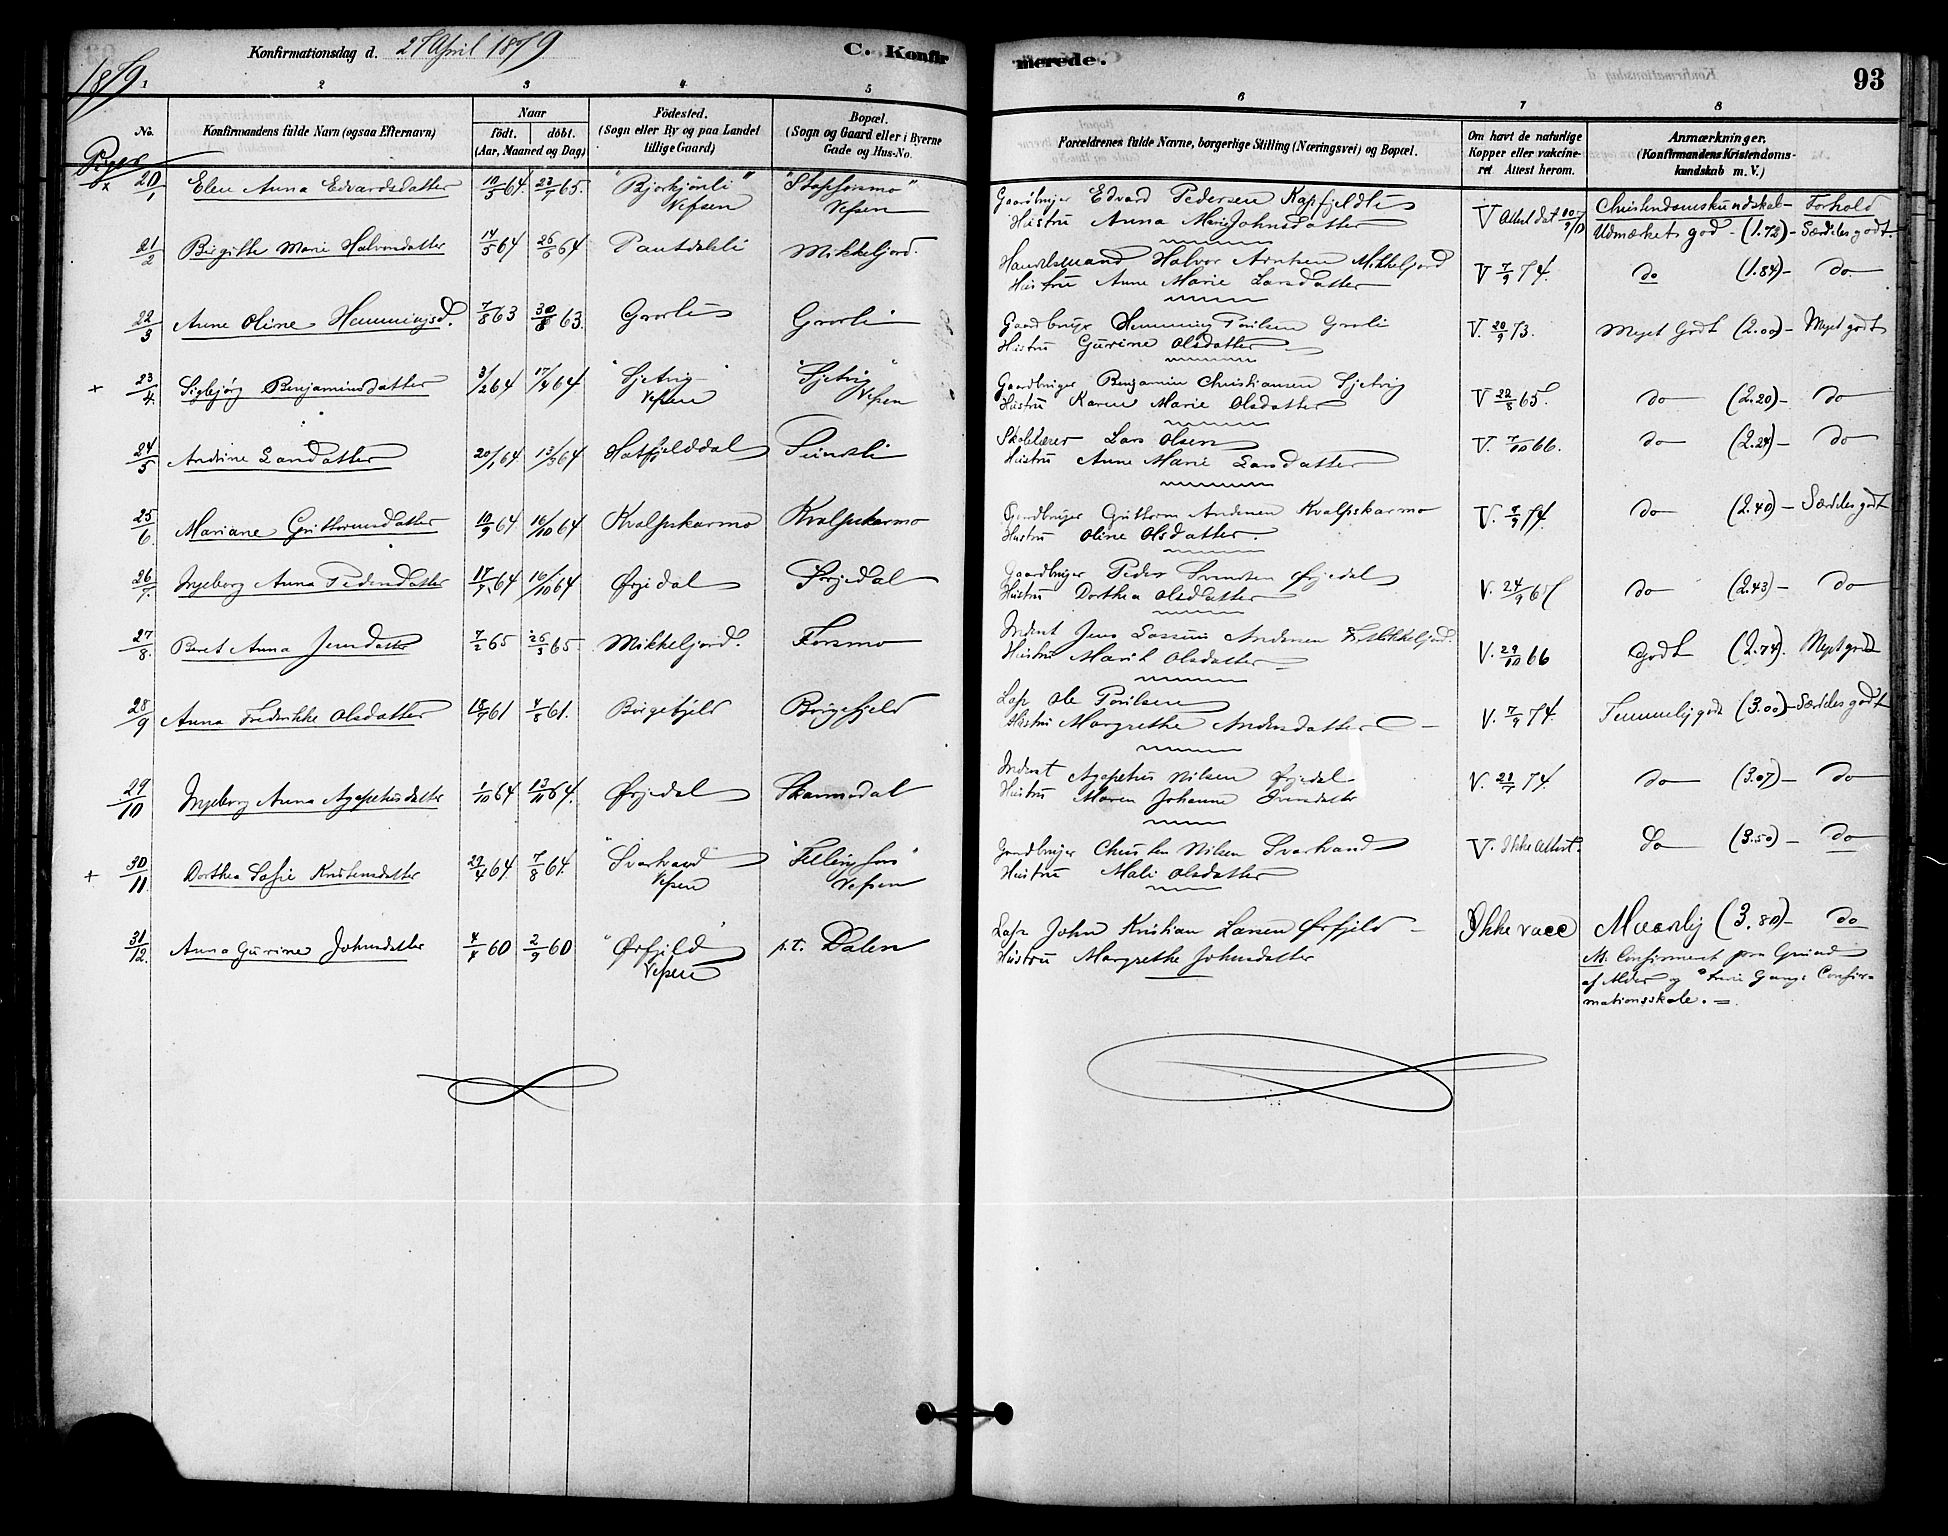 Konfirmationsdag d. 27 April 1879 C. Konfirmerede. 93
1879.
1 2 3 4 5 6 7 8
No. Konfirmandens fulde Navn (ogsaa Efternavn) Naar födt. döbt. (Aar, Maaned og Dag) Födested. (Sogn eller By og paa Landet tillige Gaard) Bopæl. (Sogn og Gaard eller i Byerne Gade og Hus-No. Forældrenes fulde Navne, borgerlige Stilling (Næringsvei) og Bopæl. Om havt de naturlige Kopper eller vakcineret Attest herom. Anmærkninger. (Konfirmandens Kristendomskundskab m. V.)
Piger
x 20/1 Elen Anna Edvardsdatter 10/5 64. 23/7 65. "Bjorkjönli" Vefsen "Stopforsmo" Vefsen Gaardbruger Edvard Pedersen Kapfjeldli V Attest dat Christendomskundskab - Forhold
Hustru Anna Marie Johnsdatter Udmærket god - (1.72) - Særdeles godt.
21/2 Birgitte Marie Halvorsdatter 14/5 64 26/6 64 Pantdalli Mikkeljord. Handelsmand Halvor Arntsen Mikkeljord V 7/9 74. do (1.84) - do
Hustru Anne Marie Larsdatter
22/3 Anne Oline Hemmingsd. 7/8 63 30/8 63. Grorli Grorli Gaardbruger Hemming Poulsen Grorli V. 20/9 73. Meget Godt (2.00) - Meget godt
Hustru Gurine Olsdatter
+ 23/4. Siglejøg Benjaminsdatter 3/2 64 17/4 64. "Sjetvig" Vefsen "Sjetvig" Vefsen Gaardbruger Benjamin Christiansen Sjetvig V 22/8 65. do (2.20) - do
Hustru Karen Marie Olsdatter
24/5 Andrine Larsdatter 20/1 64 13/3 64 Hatfjelddal Sundli Skolelærer Lars Olsen V. 7/10 66. do (2.24) - do
Hustru Anne Marie Larsdatter
25/6. Mariane Guttormsdatter 10/9 64 16/10 64 Kvalpskarmo Kvalpskarmo Gaardbruger Guttorm Andersen Kvalpskarmo V. 9/9 74. do (2.40) - Særdeles godt
Hustru Oline Olsdatter.
26/7. Ingeborg Anna Pedersdatter 17/7 64 16/10 64 Ørjedal Ørjedal Gaardbruger Peder Svendsen Ørjedal V. 24/9 67 do (2.43) - do
Hustru Dorthea Olsdatter
27/8. Beret Anna Jensdatter 7/2 65 26/3 65 Mikkeljord. Forsmo Inderst Jens Andersen Mikkeljord. V. 29/10 66 Godt (2.74). Meget godt
Hustru Marit Olsdatter
28/9 Anna Fredrikke Olsdatter 18/7 61 4/8 61. Børgefjeld Børgefjeld Lap Ole Poulsen V. 7/9 74. Temmelig godt (3.00) - Særdeles godt
Hustru Margrethe Andersdatter
29/10 Ingeborg Anna Agapetusdatter 1/10 64 13/11 64. Ørjedal Skarmodal Inderst Agapetus Nilsen Ørjedal V. 28/7 74. do (3.07) - do
Hustru Maren Johanne Iversdatter
+ 30/11. Dorthea Sofie Kristensdatter 29/4 64 7/8 64. "Svartvand" Vefsen "Fellingfors" Vefsen Gaardbruger Christen Nilsen Svartvand V. Ikke Attest. do (3.50) - do
Hustru Mali Olsdatter
31/12. Anna Gurine Johnsdatter 4/4 60 2/9 60 "Ørfjeld" Vefsen p.t. Dalen Lap John Kristian Larsen Ørfjeld Ikke vacc Maadelig (3.80) - do
Hustru Margrethe Johnsdatter N. Confirmeret paa Grund
af Alder og Gangs Confir-
mationsskole.